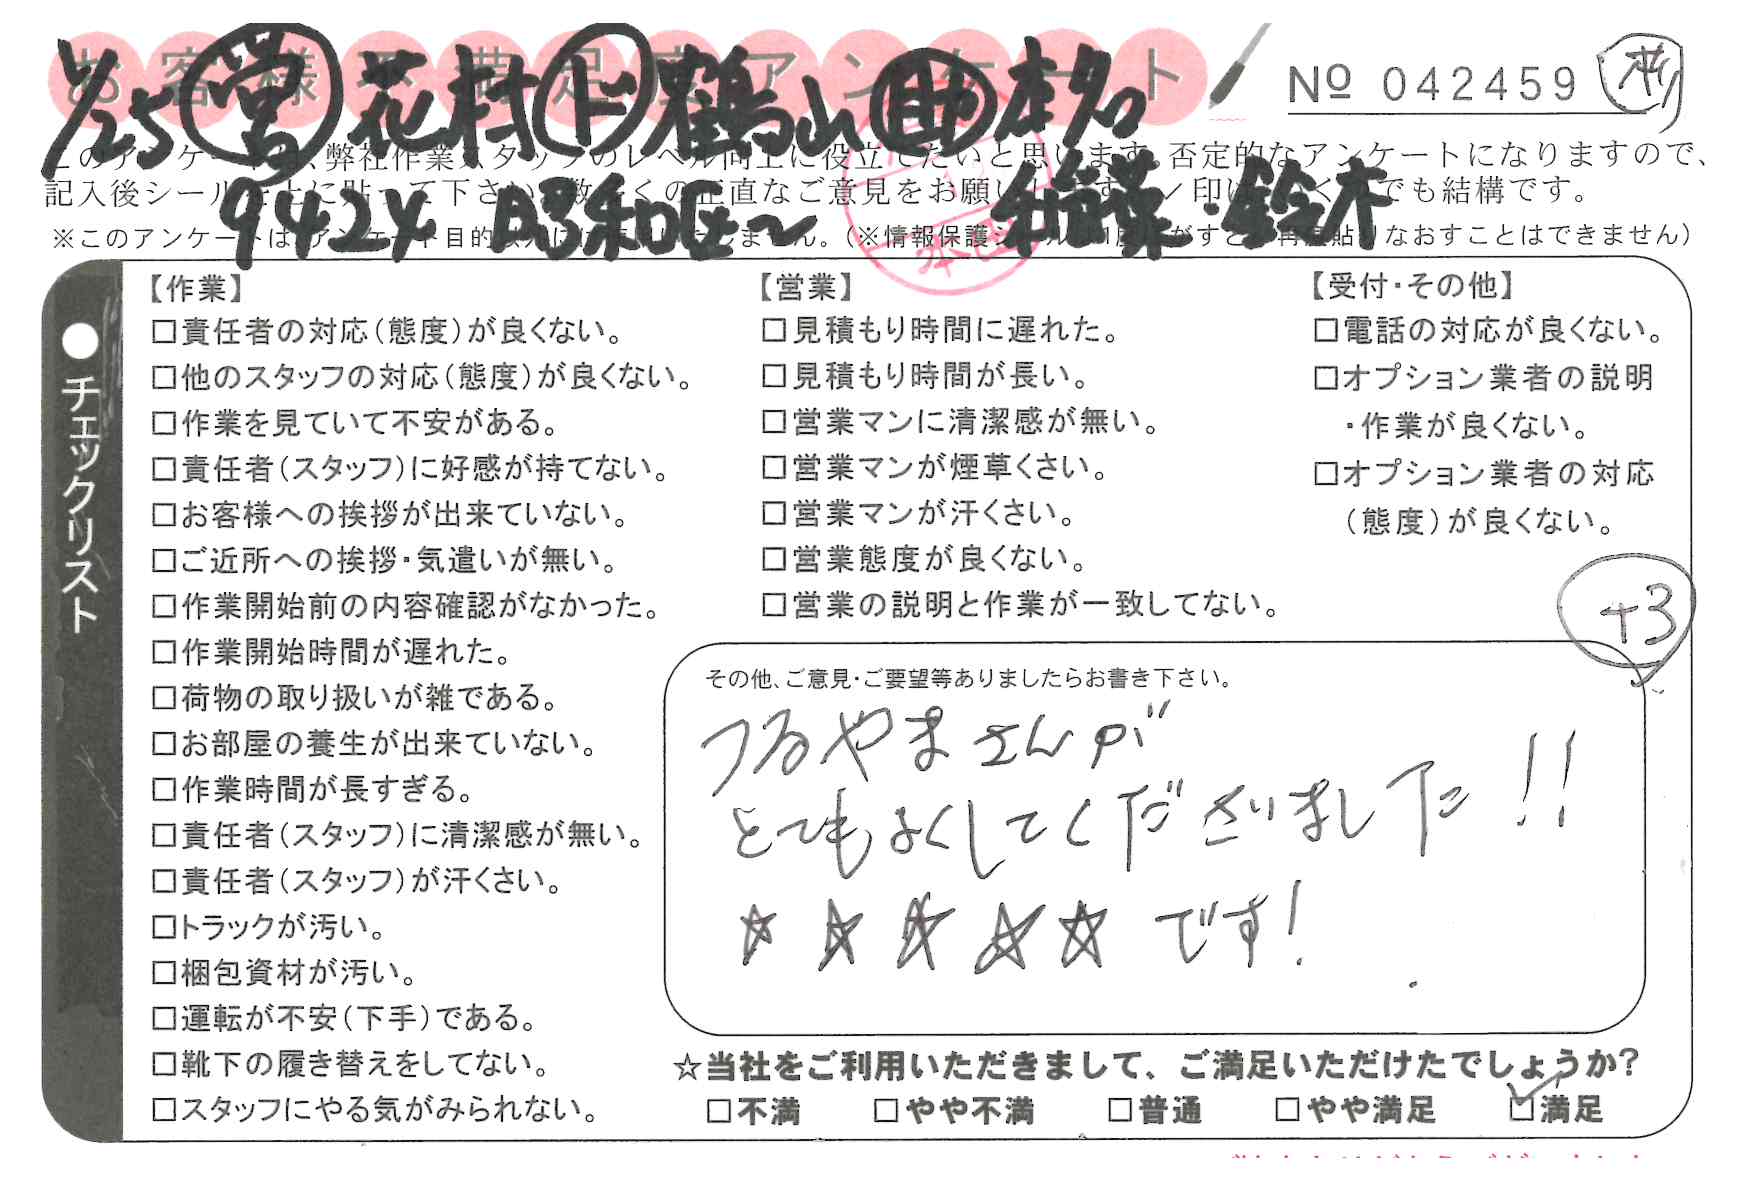 お客様不満足度アンケート
№ 042459
1/25 営 花村 ド 鶴山 助 本名
このアンケートは、弊社作業スタッフのレベル向上に役立てたいと思います。否定的なアンケートになりますので、
記入後シールを上に貼って下さい。数多くの正直なご意見をお願いします。✓印は いくつでも結構です。
9424 昭和区~ ・鈴木
※このアンケートはアンケート目的以外には しません。(※情報保護シールは1度はがすと、再度貼りなおすことはできません)
●チェックリスト
【作業】
□責任者の対応(態度)が良くない。
□他のスタッフの対応(態度)が良くない。
□作業を見ていて不安がある。
□責任者(スタッフ)に好感が持てない。
□お客様への挨拶が出来ていない。
□ご近所への挨拶・気遣いが無い。
□作業開始前の内容確認がなかった。
□作業開始時間が遅れた。
□荷物の取り扱いが雑である。
□お部屋の養生が出来ていない。
□作業時間が長すぎる。
□責任者(スタッフ)に清潔感が無い。
□責任者(スタッフ)が汗くさい。
□トラックが汚い。
□梱包資材が汚い。
□運転が不安(下手)である。
□靴下の履き替えをしてない。
□スタッフにやる気がみられない。
【営業】
□見積もり時間に遅れた。
□見積もり時間が長い。
□営業マンに清潔感が無い。
□営業マンが煙草くさい。
□営業マンが汗くさい。
□営業態度が良くない。
□営業の説明と作業が一致してない。
【受付・その他】
□電話の対応が良くない。
□オプション業者の説明
・作業が良くない。
□オプション業者の対応
(態度)が良くない。
+3
その他、ご意見・ご要望等ありましたらお書き下さい。
つるやまさんが
とてもよくしてくださいました!!
☆☆☆☆☆です!
☆当社をご利用いただきまして、ご満足いただけたでしょうか?
□不満 □やや不満 □普通 □やや満足 ☑満足